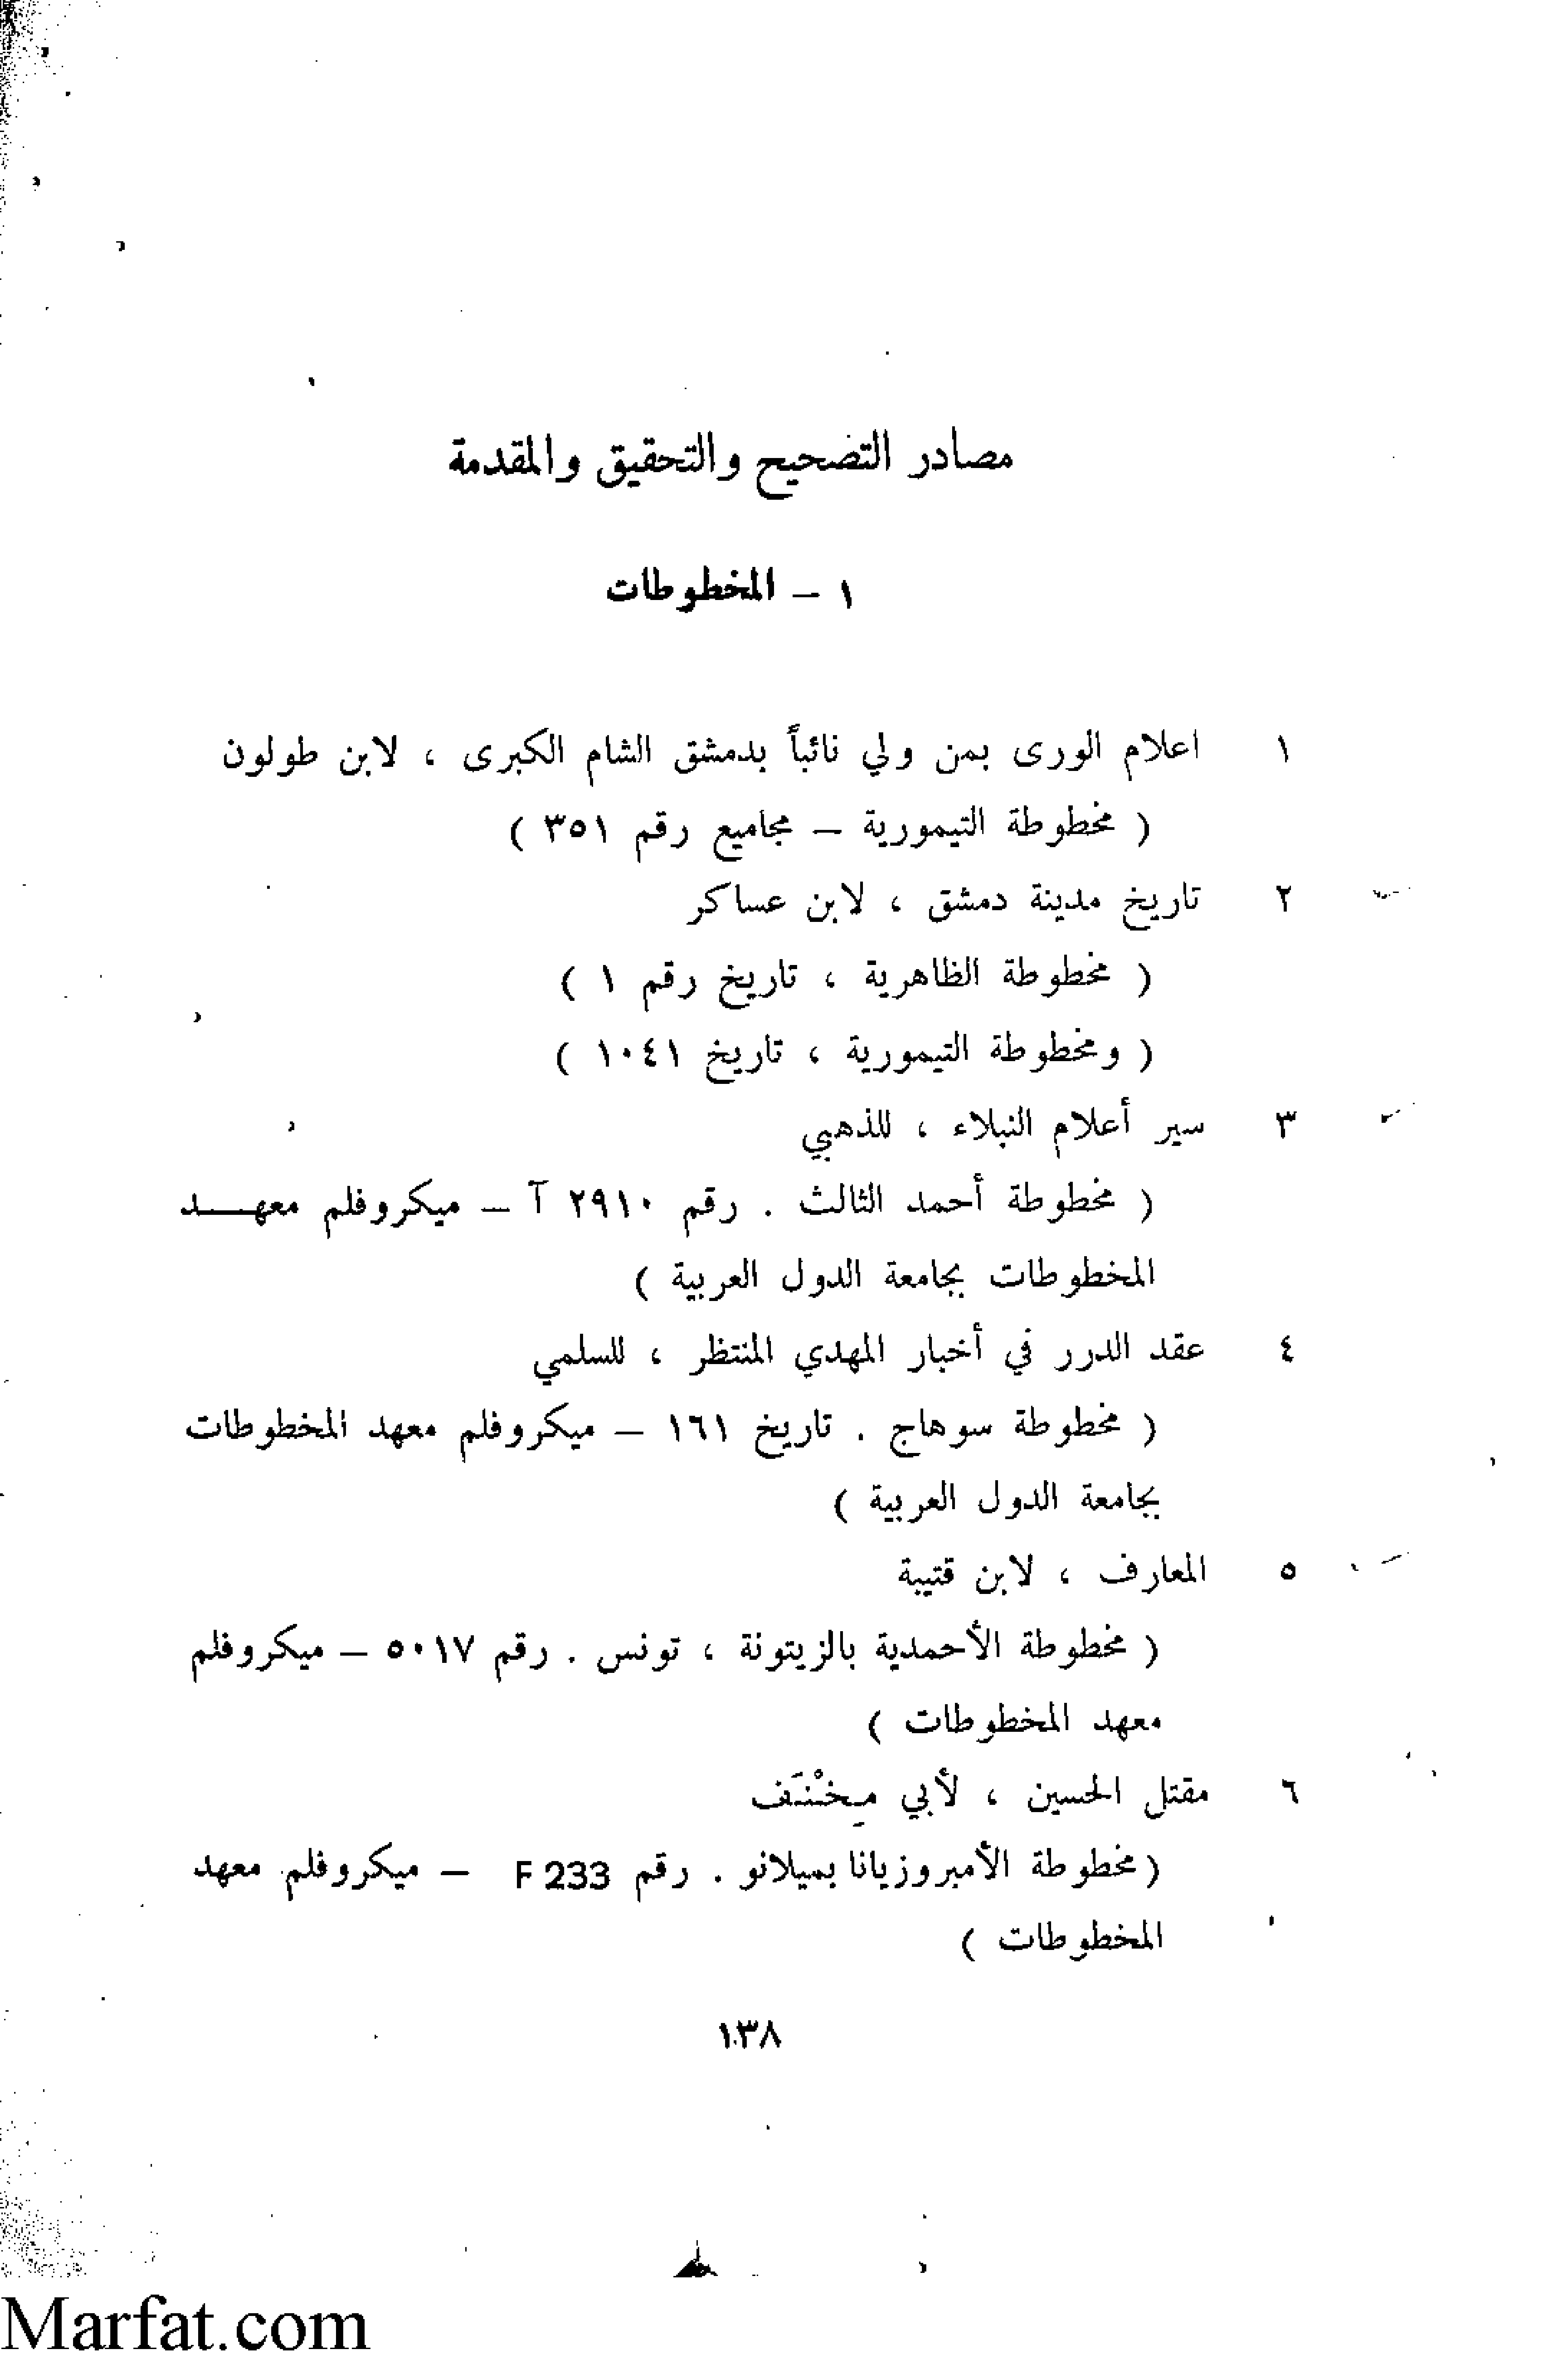 مصادر التصحيح والتحقيق والمقدمة
١ – المخطوطات
١ اعلام الورى بمن ولي نائباً بدمشق الشام الكبرى ، لابن طولون
( مخطوطة التيمورية – مجاميع رقم ٣٥١ )
٢ تاريخ مدينة دمشق ، لابن عساكر
( مخطوطة الظاهرية ، تاريخ رقم ١ )
( ومخطوطة التيمورية ، تاريخ ١٠٤١ )
٣ سير أعلام النبلاء ، للذهبي
( مخطوطة أحمد الثالث . رقم ٢٩١٠ آ – ميكروفلم معهــد
المخطوطات بجامعة الدول العربية )
٤ عقد الدرر في أخبار المهدي المنتظر ، للسلمي
( مخطوطة سوهاج . تاريخ ١٦١ – ميكروفلم معهد المخطوطات
بجامعة الدول العربية )
٥ المعارف ، لابن قتيبة
( مخطوطة الأحمدية بالزيتونة ، تونس . رقم ٥٠١٧ – ميكروفلم
معهد المخطوطات )
٦ مقتل الحسين ، لأبي مِخْنَف
( مخطوطة الأمبروزيانا بميلانو . رقم F 233 – ميكروفلم معهد
المخطوطات )
١٣٨
Marfat.com